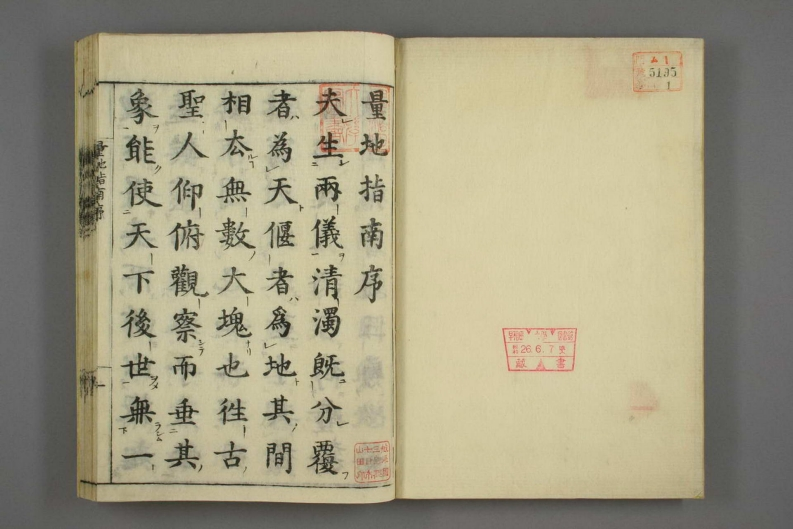 量地指南序
夫生兩儀清濁既分覆
者為天偃者爲地其間
相去無數大塊也徃古
聖人仰俯觀察而垂其
象能使天下後世無一
量地指南序
5195
1
26.6.7
蔵書